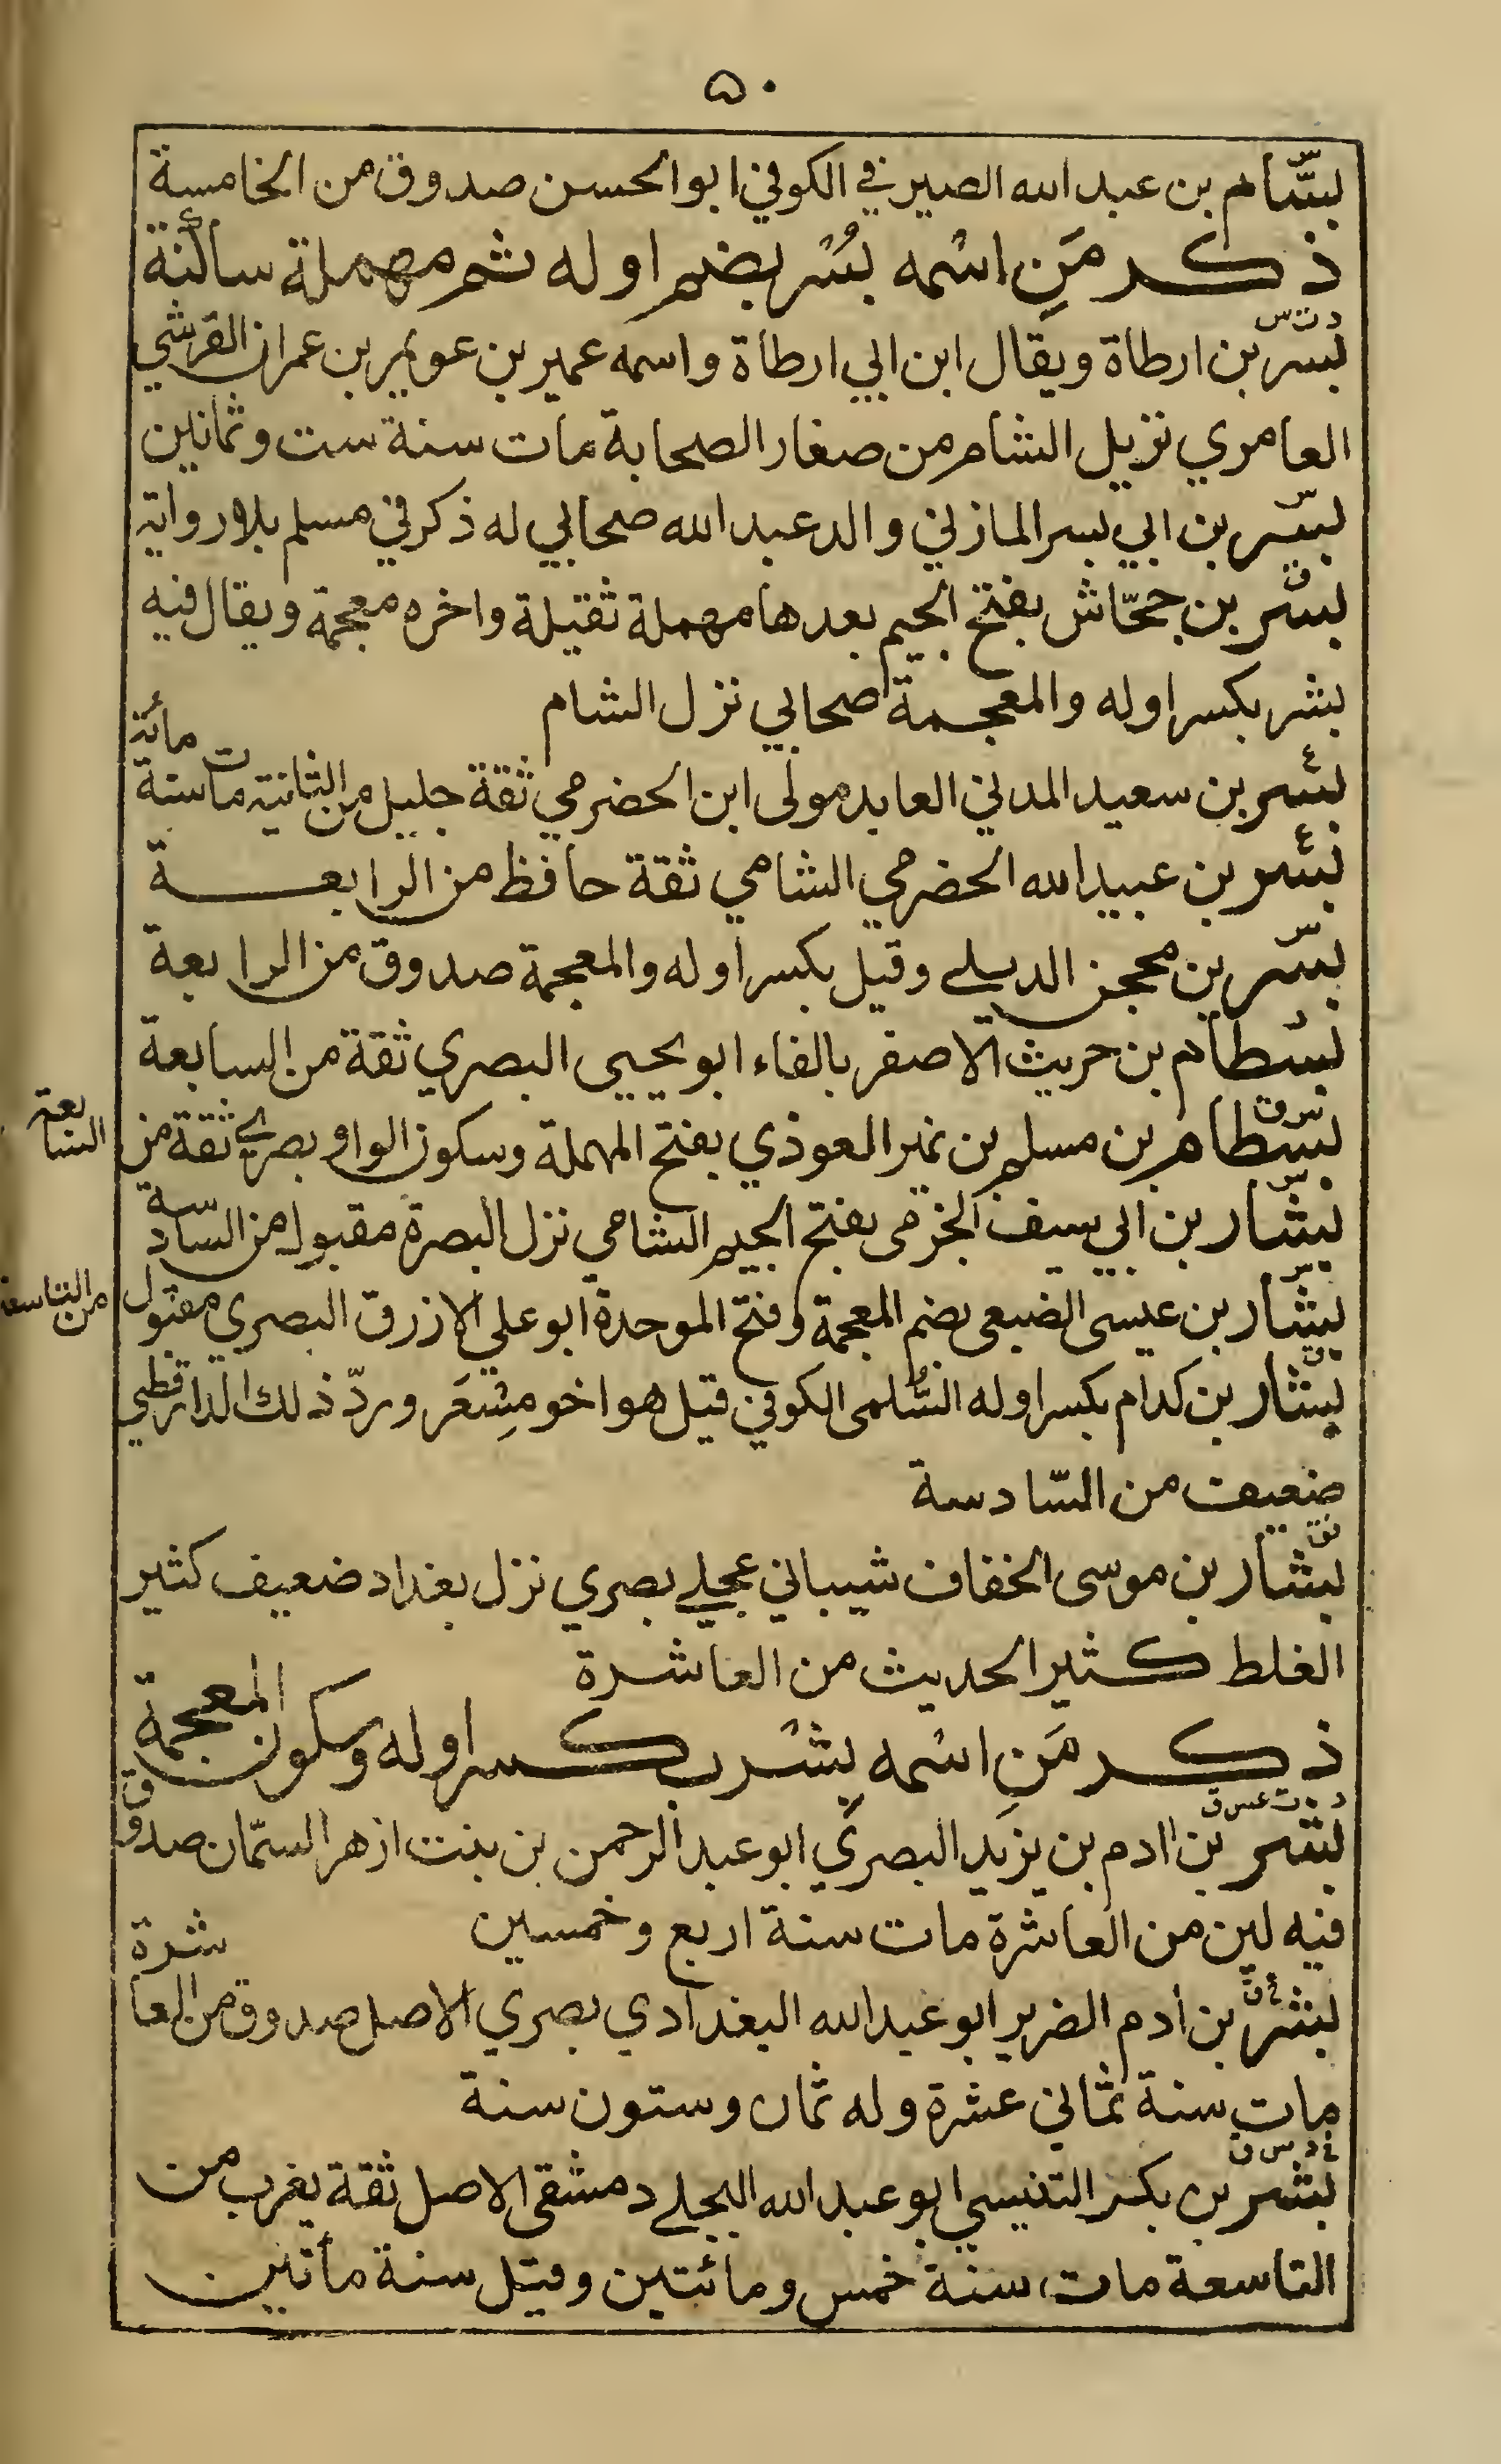 ۵۰
بسّام بن عبد الله الصيرفي الكوفي ابو الحسن صدوق من الخامسة
ذكر مَنِ اسْمه بُسْر بضم اوله ثم مهملة ساكنة
د ت س
بسر بن ارطاة ويقال ابن ابي ارطاة واسمه عمير بن عويمر بن عمران القرشي
العامري نزيل الشام من صغار الصحابة مات سنة ست وثمانين
س
بسر بن ابي بسر المازني والد عبد الله صحابي له ذكر في مسلم بلا رواية
ق
بسر بن جحّاش بفتح الجيم بعدها مهملة ثقيلة واخره معجمة ويقال فيه
بشر بكسر اوله والمعجمة صحابي نزل الشام
ع
بسر بن سعيد المدني العابد مولى ابن الحضرمي ثقة جليل من الثانية مات سنة مائة
ع
بسر بن عبيد الله الحضرمي الشامي ثقة حافظ من الرابعة
س
بسر بن محجن الديلي وقيل بكسر اوله والمعجمة صدوق من الرابعة
د
بسطام بن حريث الاصفر بالفاء ابو يحيى البصري ثقة من السابعة
س ق
بسطام بن مسلم بن نمير العوذي بفتح المهملة وسكون الواو بصري ثقة من السابعة
س
بشّار بن ابي سيف الجرمي بفتح الجيم الشامي نزل البصرة مقبول من السادسة
س
بشّار بن عيسى الضبعي بضم المعجمة وفتح الموحدة ابو علي الازرق البصري مقبول من التاسعة
ق
بشار بن كدام بكسر اوله السُّلمى الكوفي قيل هو اخو مِسْعَر وردّ ذلك الدارقطني
ضعيف من السّادسة
بشّار بن موسى الخفاف شيباني عجلي بصري نزل بغداد ضعيف كثير
الغلط كثير الحديث من العاشرة
ذكر مَنِ اسْمه بشْر بكسر اوله وسكون المعجمة
د ت عس ق
بشر بن ادم بن يزيد البصري ابو عبد الرحمن بن بنت ازهر السمّان صدوق
فيه لين من العاشرة مات سنة اربع وخمسين
خ ق
بشر بن أدم الضرير ابو عبد الله البغدادي بصري الاصل صدوق من العاشرة
مات سنة ثماني عشرة وله ثمان وستون سنة
خ د س ق
بشر بن بكر التنيسي ابو عبد الله البجلي دمشقى الاصل ثقة يغرب من
التاسعة مات سنة خمس ومائتين وقيل سنة مأتين